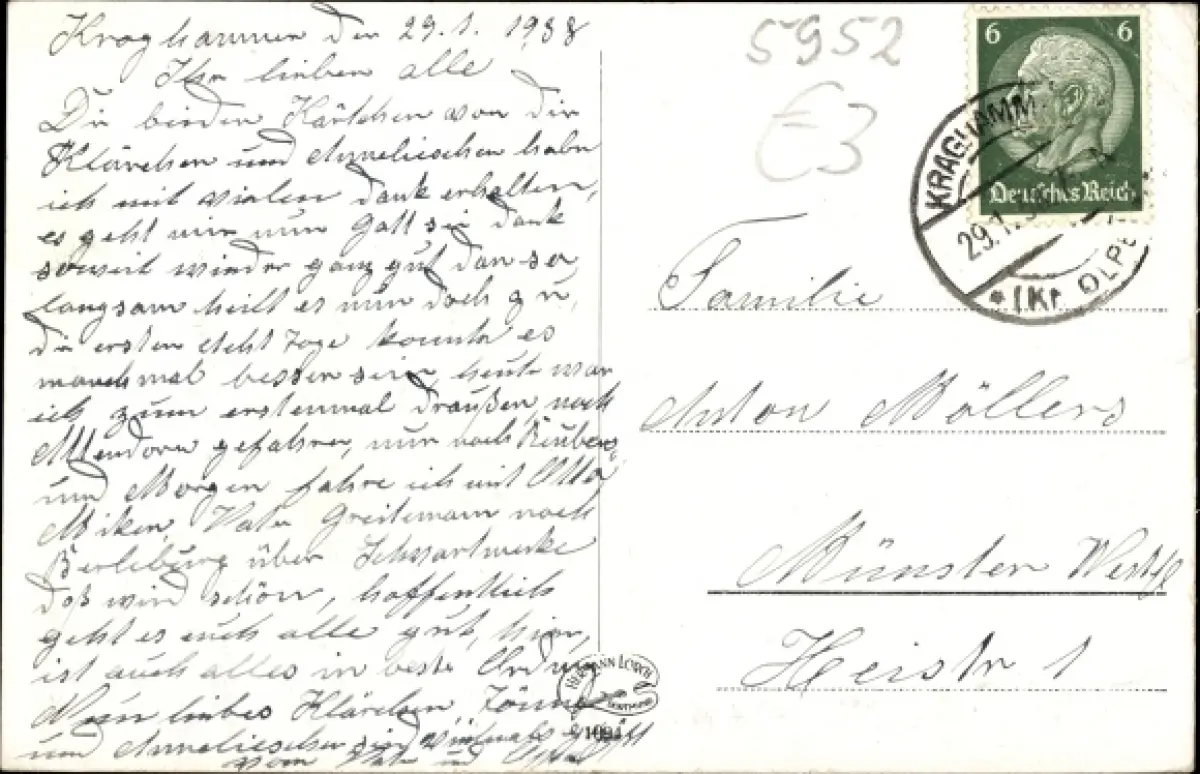 Kraghammer den 29.1.1938
Ihr lieben alle
Die beiden Kärtchen von dir
Klärchen und Annelieschen habe
ich mit vielen dank erhalten,
es geht mir nun Gott sei dank
soweit wieder ganz gut,
langsam heilt es nun doch zu,
die ersten Acht Tage konnte es
manchmal besser sein, heute war
ich zum erstenmal draußen, nach
Attendorn gefahren, nur nach
und Morgen fahre ich mit Otto
Vater Greitemann nach
Berleburg über
daß wird schön, hoffentlich
geht es euch alle gut, hier,
ist auch alles in beste
Nun liebes Klärchen,
und Annelieschen seid vielmals gegrüßt
vom Vater und
5952
€3
6 6
Deutsches Reich
KRAGHAMM
29.1.3
(Kr. OLPE
Familie
Anton Möllers
Münster Westf
Heistr 1
HERMANN LORCH
DORTMUND